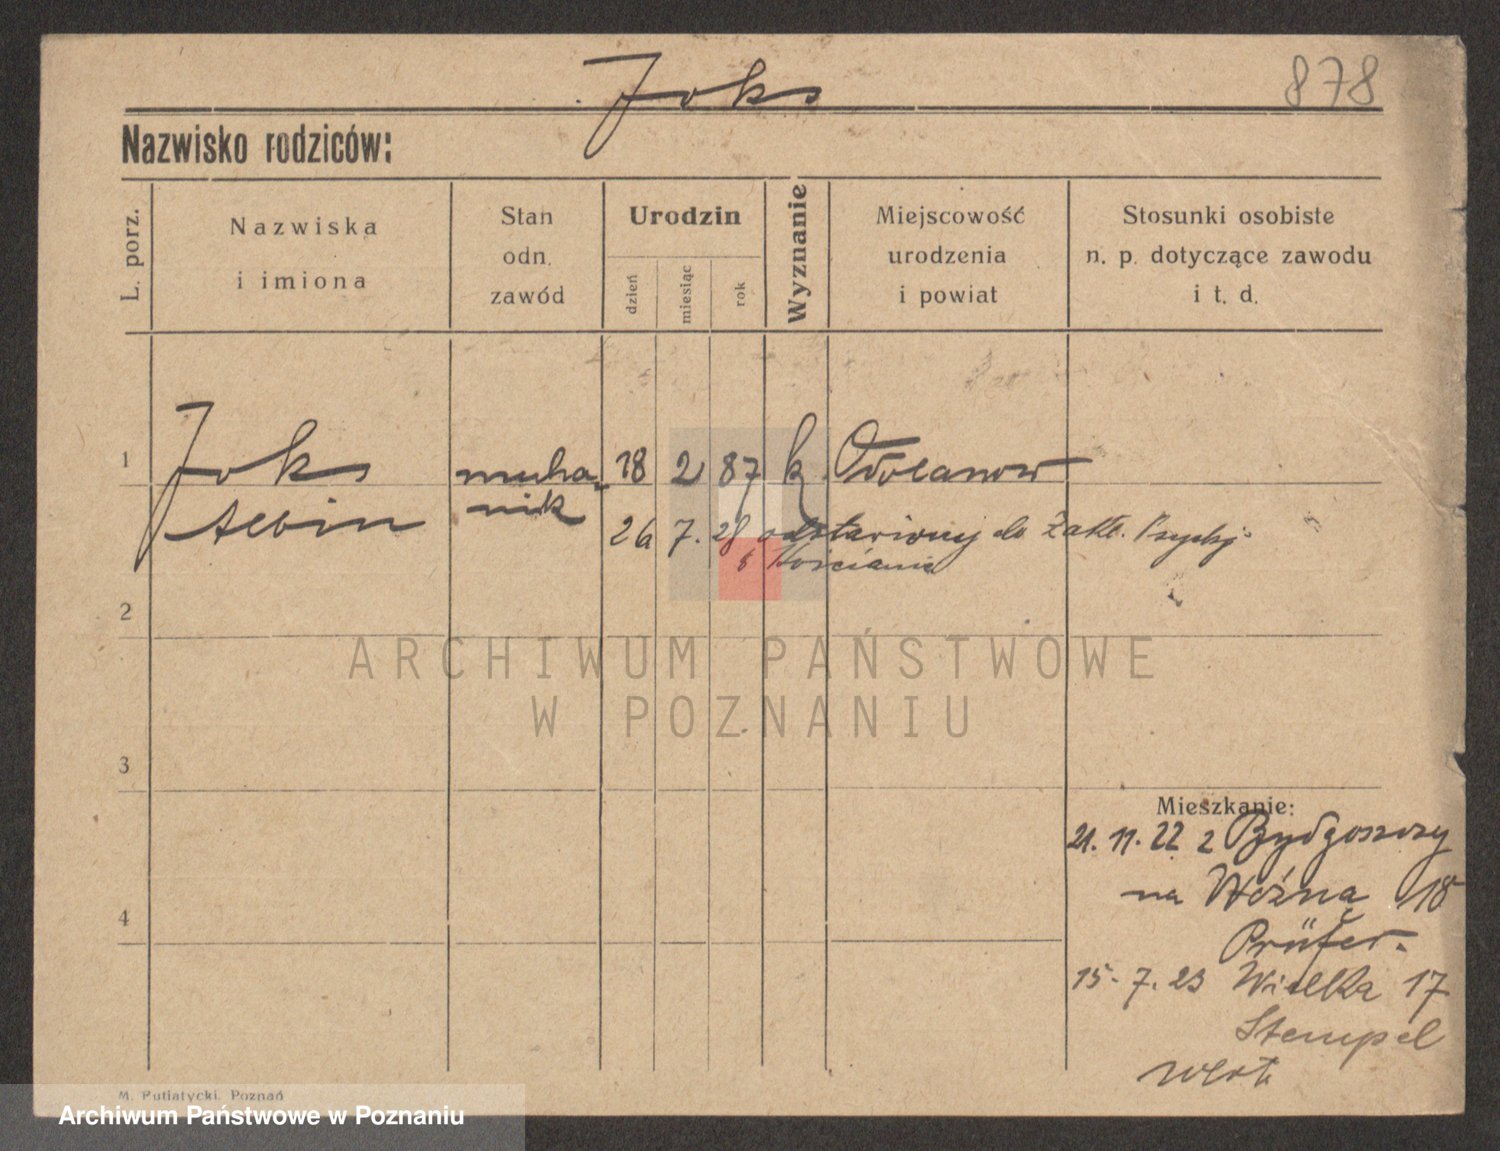 Joks
878
Nazwisko rodziców:
L. porz.
Nazwiska
i imiona
Stan
odn.
zawód
Urodzin
dzień
miesiąc
rok
Wyznanie
Miejscowość
urodzenia
i powiat
Stosunki osobiste
n. p. dotyczące zawodu
i t. d.
1
Joks
Albin
mecha-
nik
18 2 87 k Odolanow
26 7. 28 odstawiony do Zakł. Psychj.
Kościanie
2
ARCHIWUM PAŃSTWOWE
W POZNANIU
3
Mieszkanie:
21. 11. 22 z Bydgoszczy
na Woźna 18
Prüfer.
15. 7. 23 Wielka 17
Stempel
4
M. Putiatycki, Poznań
Archiwum Państwowe w Poznaniu